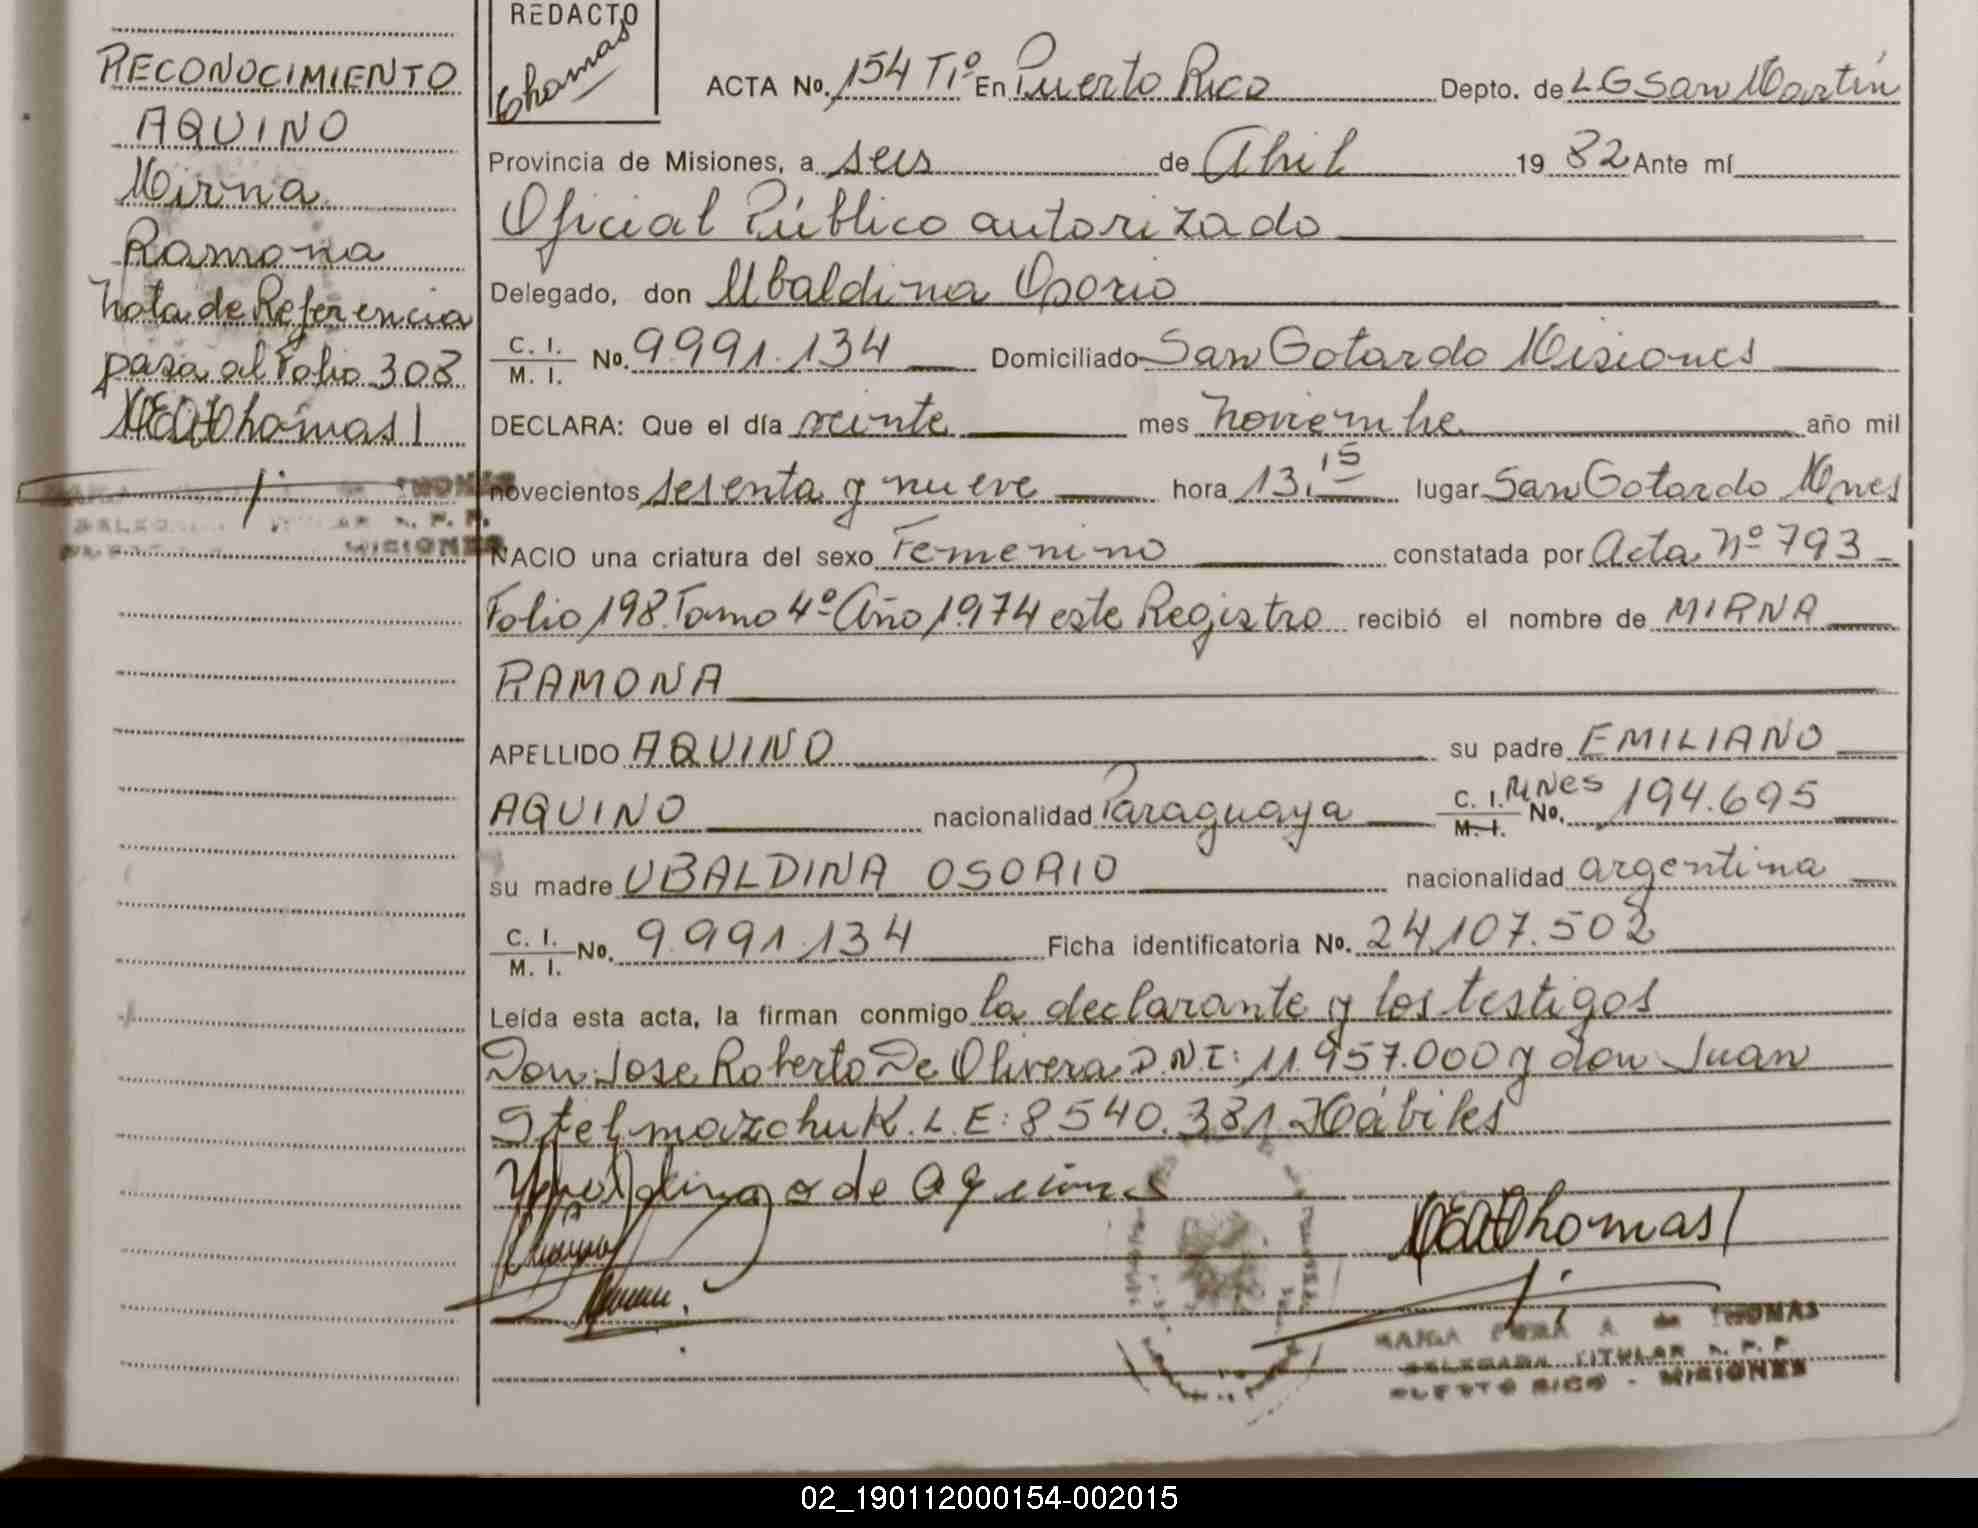 REDACTO
Thomas
RECONOCIMIENTO
AQUINO
Mirna
Ramona
Nota de Referencia
pasa al Folio 308
MEAThomas
DE THOMAS
MISIONES
ACTA No. 154 T1º En Puerto Rico Depto. de LG San Martín
Provincia de Misiones, a seis de Abril 1982 Ante mí
Oficial Público autorizado
Delegado, don Ubaldina Osorio
C. I. M. I. No. 9.991.134 Domiciliado San Gotardo Misiones
DECLARA: Que el día veinte mes noviembre año mil
novecientos sesenta y nueve hora 13,15 lugar San Gotardo Mnes
NACIO una criatura del sexo Femenino constatada por Acta Nº 793
Folio 198 Tomo 4º Año 1974 este Registro recibió el nombre de MIRNA
RAMONA
APELLIDO AQUINO su padre EMILIANO
AQUINO nacionalidad Paraguaya C. I. M. I. Mnes No. 194.695
su madre UBALDINA OSORIO nacionalidad argentina
C. I. M. I. No. 9.991.134 Ficha identificatoria No. 24.107.502
Leída esta acta, la firman conmigo la declarante y los testigos
Don Jose Roberto De Olivera D.N.I: 11.957.000 y don Juan
Stelmazchuk. L.E: 8.540.381 Hábiles
de Aquino
MEAThomas
MARIA ELENA A de THOMAS
DELEGADA TITULAR R. P. P.
PUERTO RICO - MISIONES
02_190112000154-002015